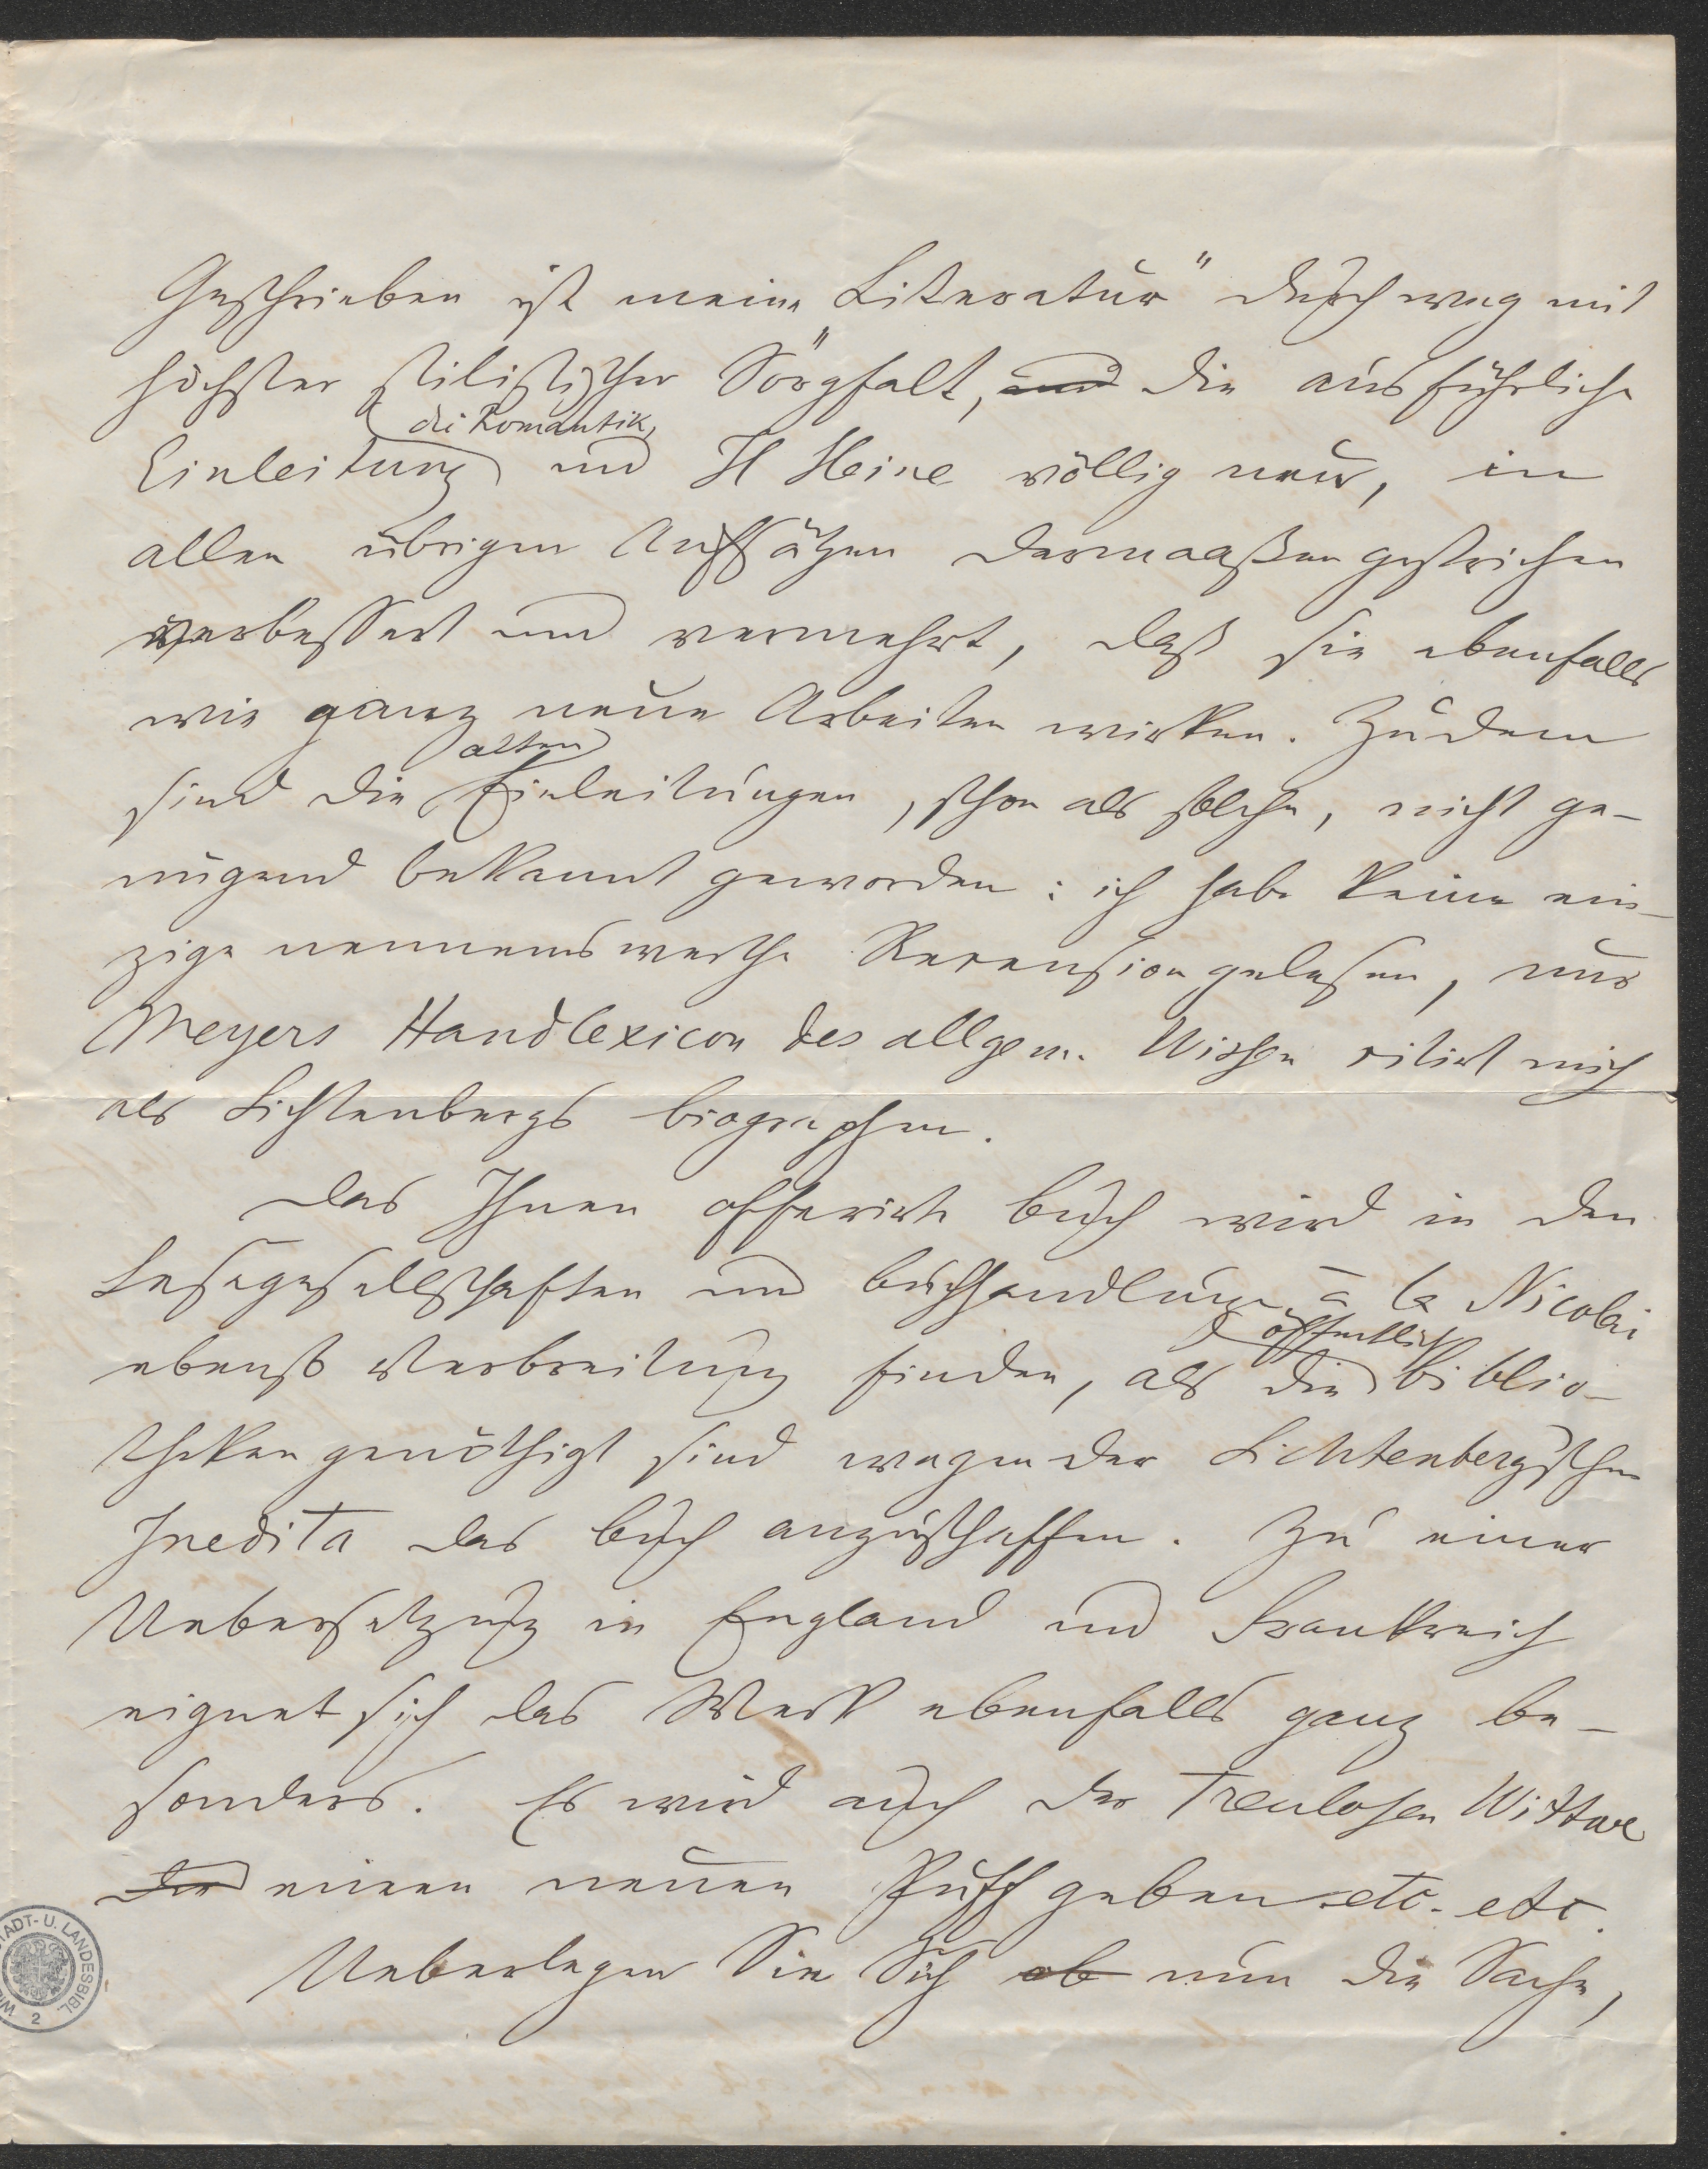 Geschrieben ist meine „Literatur“ durchweg mit
höchster stilistischer Sorgfalt, und die ausführliche
die Romantik,
Einleitung und H Heine völlig neu, in
allen übrigen Aufsätzen dermaaßen gestrichen
verbessert und vermehrt, daß sie ebenfalls
wie ganz neue Arbeiten wirken. Zudem
alten
sind die Einleitungen, schon als solche, nicht ge-
nügend bekannt geworden: ich habe keine ein-
zige nennenswerthe Recension gelesen, nur
Meyers Handlexicon des allgem. Wissen citirt mich
als Lichtenbergs Biographen.
Das Ihnen offerirte Buch wird in den
Lesegesellschaften und Buchhandlungen à la Nicolai
öffentlichen
ebenso Verbreitung finden, als die Biblio-
theken genöthigt sind wegen der Lichtenberg'schen
Inedita das Buch anzuschaffen. Zu einer
Uebersetzung in England und Frankreich
eignet sich das Werk ebenfalls ganz be-
sonders. Es wird auch der Treulosen Wittwe
den einen neuen Puff geben etc. etc.
Ueberlegen Sie Sich ob nun die Sache,
STADT- U. LANDESBIBL.
2